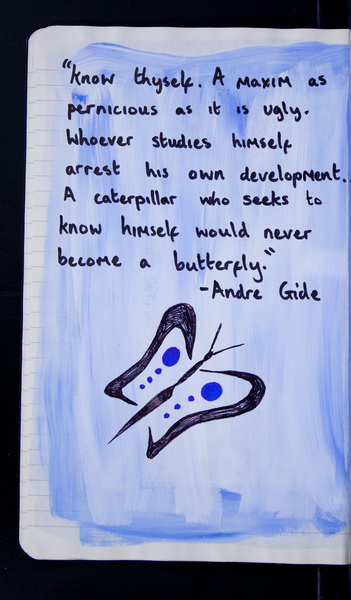 "Know thyself. A maxim as
pernicious as it is ugly.
Whoever studies himself
arrest his own development.
A caterpillar who seeks to
know himself would never
become a butterfly."
-Andre Gide